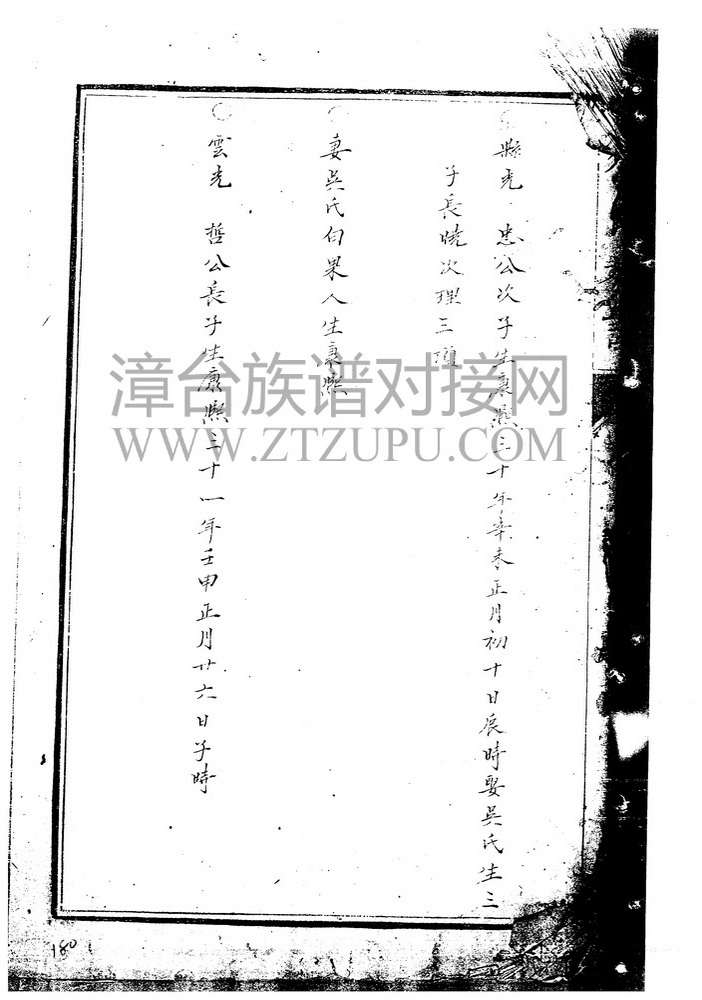 ○縣光 忠公次子生康熙三十年辛未正月初十日辰時娶吳氏生三
子長曉次理三瓊
○妻吳氏白果人生康熙
○雲光 哲公長子生康熙三十一年壬申正月廿六日子時
漳台族谱对接网
WWW.ZTZUPU.COM
180